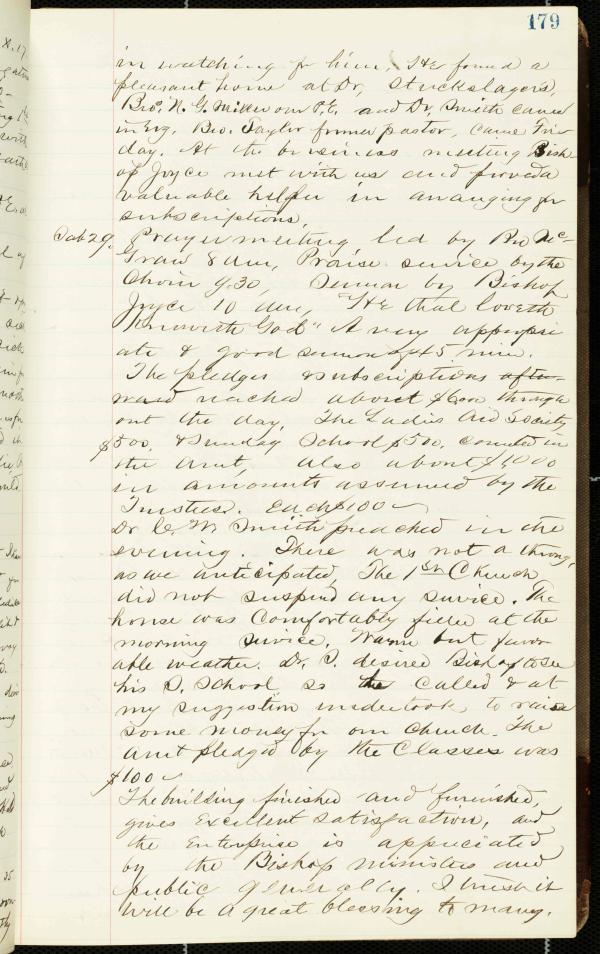 179
in watching for him, He found a
pleasant home at Dr, Stuckslagers,
Bro. N. G. Miller our P.E. and Dr, Smith came
in Evg. Bro. Taylor former pastor, came Fri-
day. At the business meeting Bish-
op Joyce met with us and proved a
valuable helper in arranging for
subscriptions,
Sab 29. Prayer meeting led by Bro Mc-
Graw 8 Am, Praise service by the
Choir 9.30, Sermon by Bishop
Joyce 10 Am, "He that loveth
knoweth God" A very appropri
ate & good sermon of 45 min.
The pledges & subscriptions after-
ward reached about $600 through
out the day, The Ladies Aid Society
$500, & Sunday School $500, counted in
the amt, also about $1,000
in amounts assumed by the
Trustees. Each $100
Dr. C. W. Smith preached in the
evening. There was not a throng,
as we anticipated, The 1st Church
did not suspend any service. The
house was comfortably filled at the
morning service, Warm but favor
able weather. Dr. S. desired Bishop to see
his S. School so he called & at
my suggestion undertook, to raise
some money for our church. The
amt pledged by the Classes was
$100
The building finished and furnished,
gives excellent satisfaction, and
the Enterprise is appreciated
by the Bishop ministers and
public generally. I trust it
will be a great blessing to many.